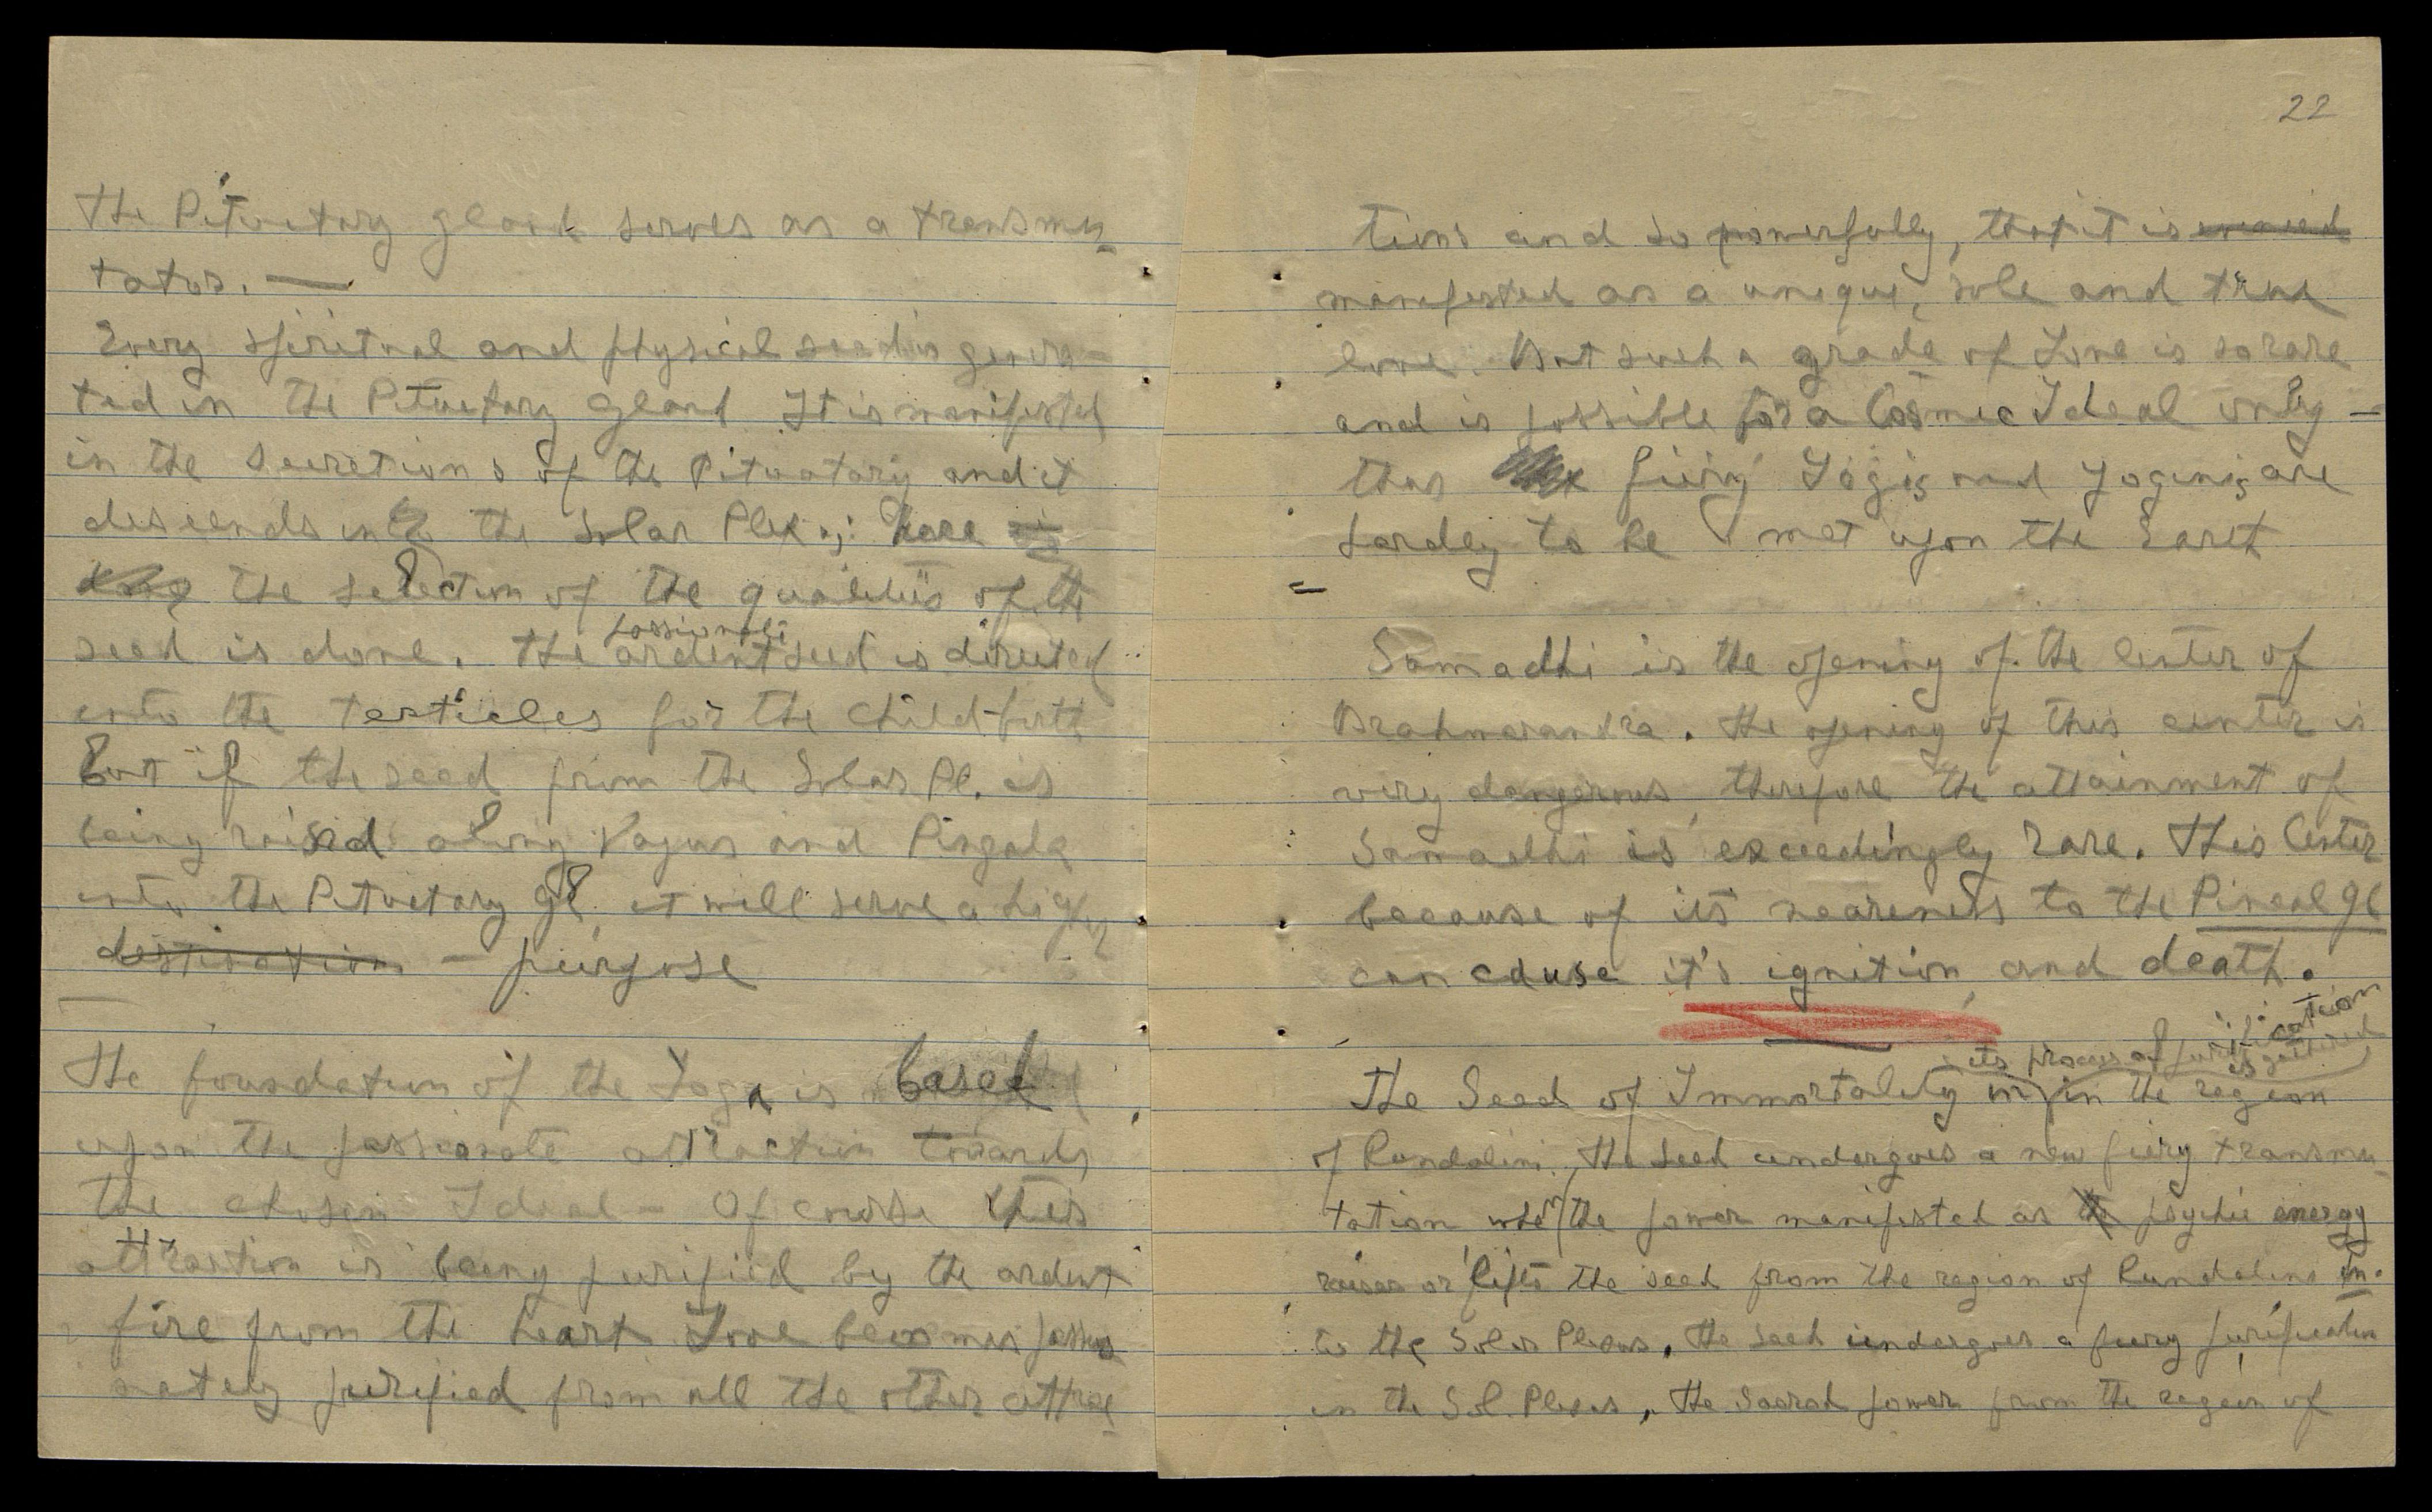 the Pituetary gland serves as a transmu-
tator. —
Every spiritual and physical seed is genera-
ted in the Pituetary gland It is manifested
in the secretions of the Pituatary and it
descends into the Solar Plex.; here
the selection of the qualities of the
passionate
seed is done. The ardent seed is directed
into the testicles for the child-birth
but if the seed from the Solar Pl. is
being raised along Vagus and Pingala
into the Pituetary gl. it will serve a higher
destination — purpose
The foundation of the Yoga is based
upon the passionate attraction towards
the chosen Ideal — Of course this
attraction is being purified by the ardent
fire from the heart Love becomes passio
nately purified from all the other attrac-
22
tions and so powerfully, that it is
manifested as a unique, sole and true
love. But such a grade of Love is so rare
and is possible for a Cosmic Ideal only —
thus fiery Yogis and Yoginis are
hardly to be met upon the Earth
Samadhi is the opening of the center of
Brahmarandra. The opening of this center is
very dangerous, therefore the attainment of
Samadhi is exceedingly rare. This Center
because of its neareness to the Pineal gl
can cause it's ignition and death.
its process of purification
is gathered
The Seed of Immortality in the region
of Kundalini. The seed undergoes a new fiery transmu-
tation when the power manifested as the psychic energy
raises or lifts the seed from the region of Kundalini in-
to the Solar Plexus. The seed undergoes a fiery purification
in the Sol. Plexus, the sacred power from the region of